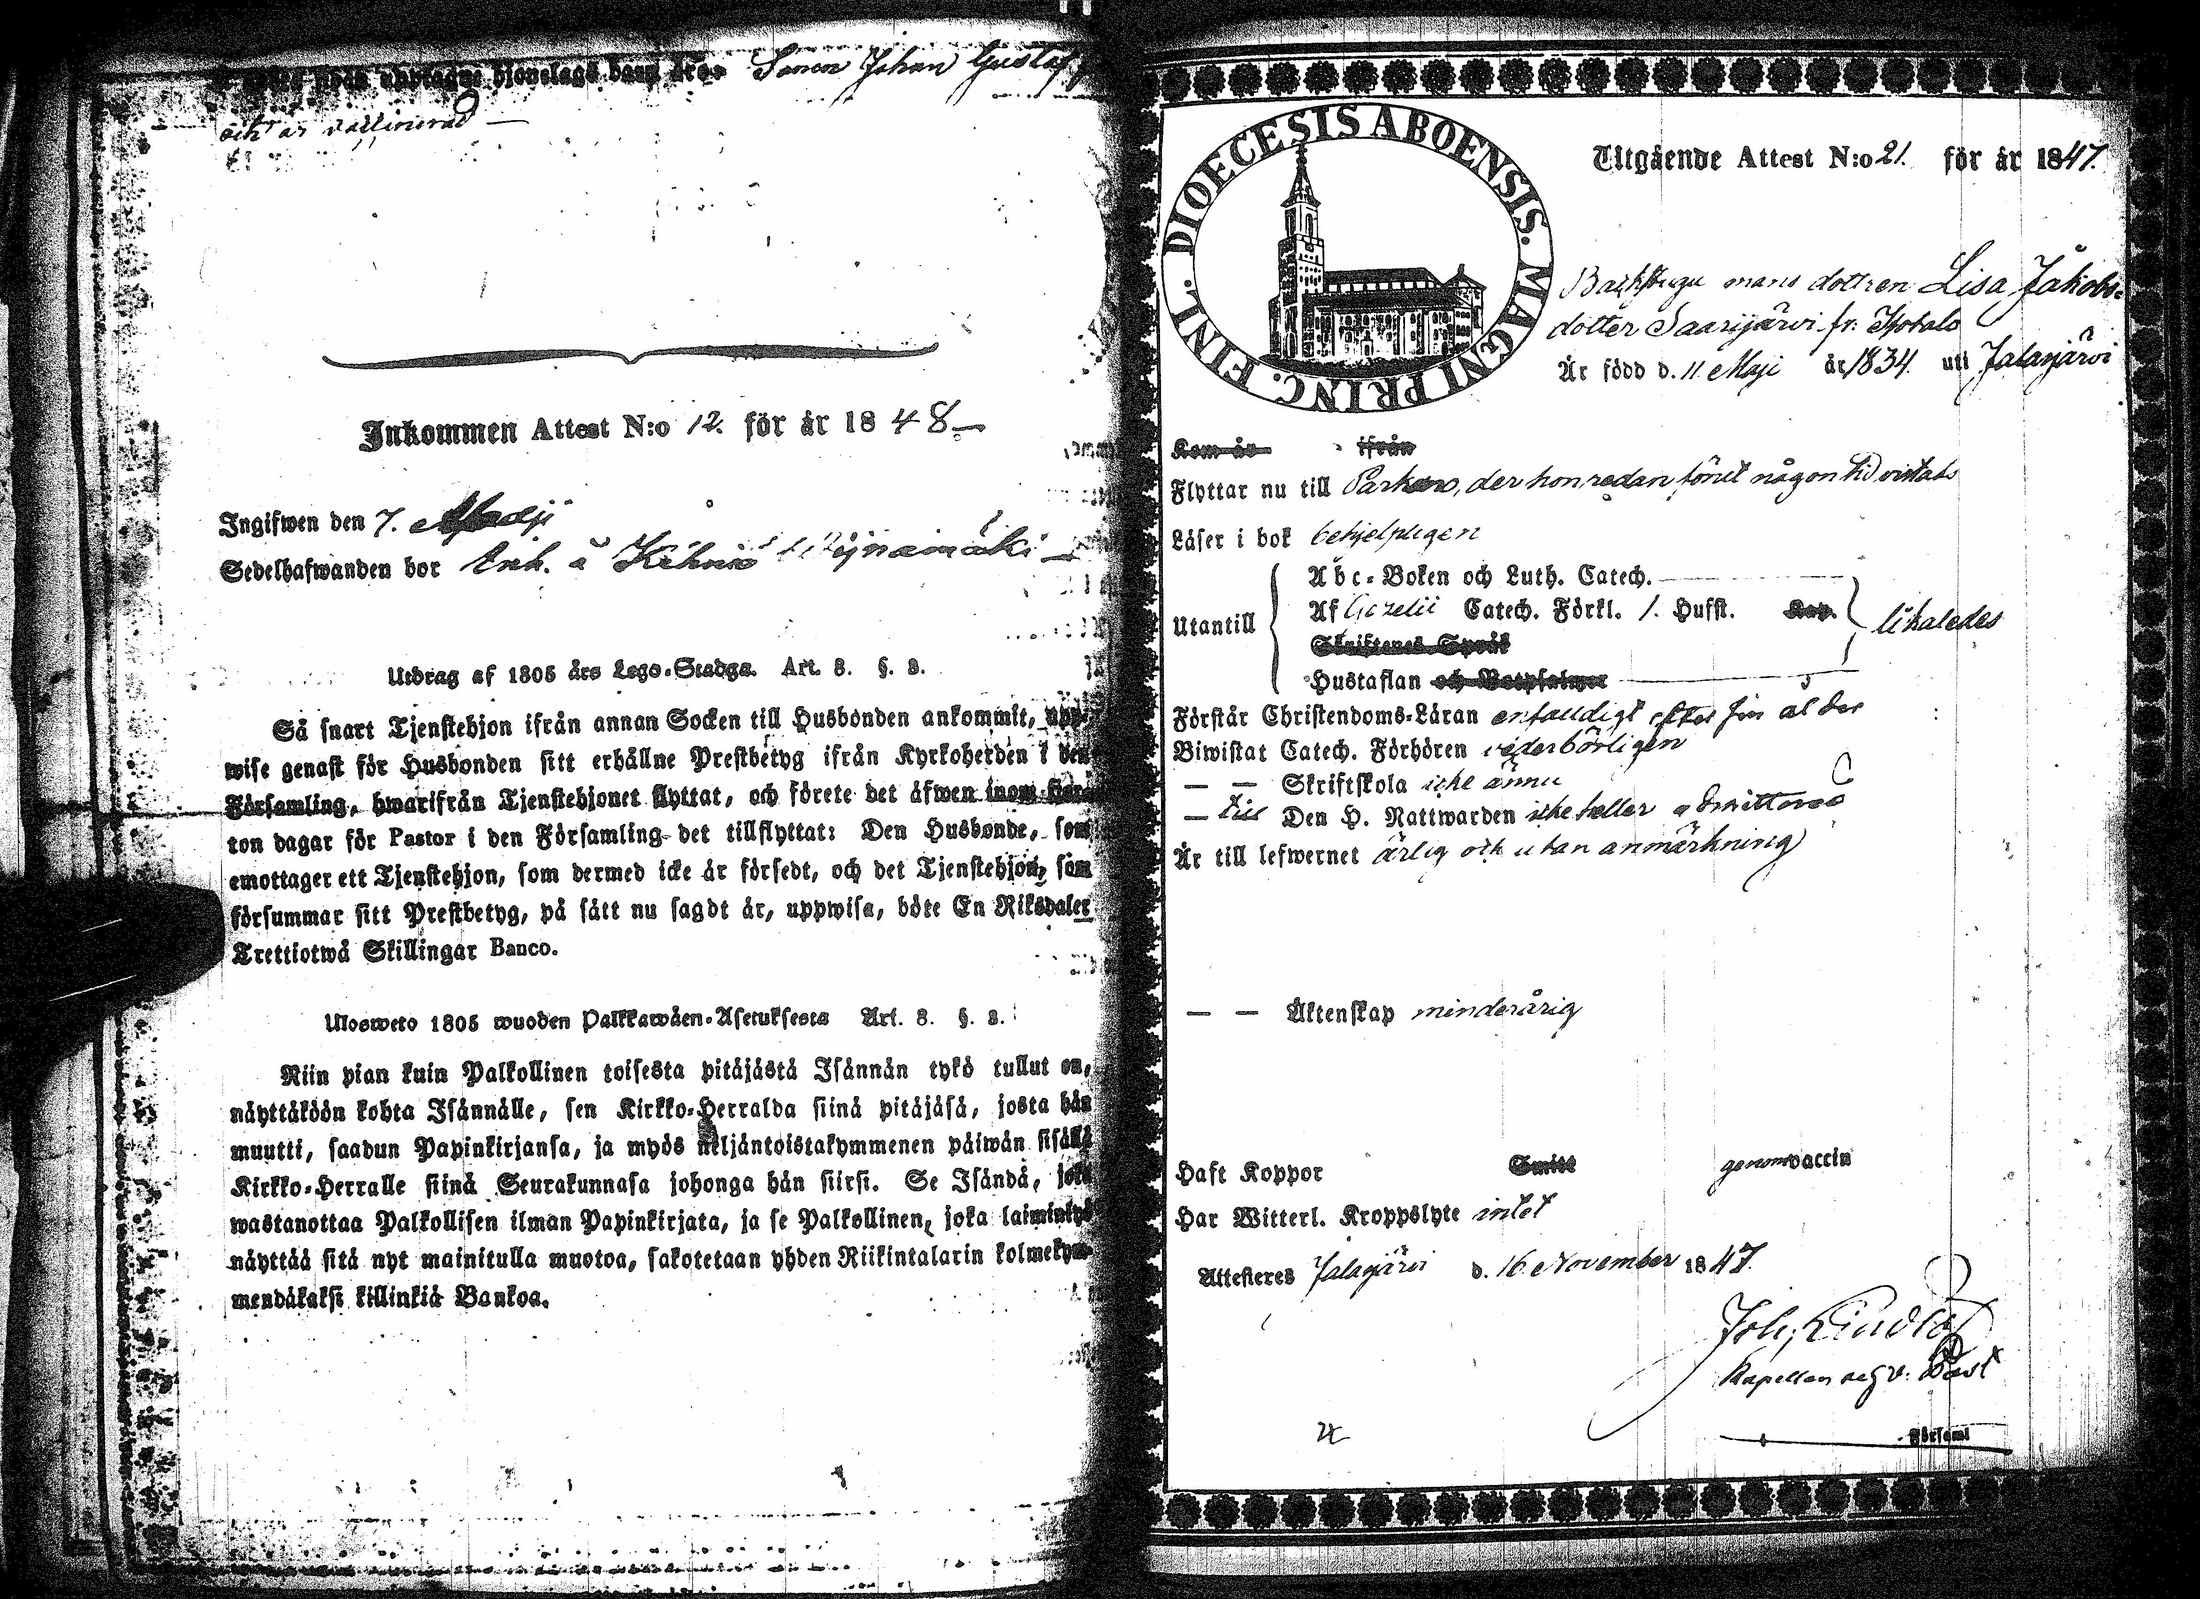 Sonen Johan Gustaf
och är vaccinerad —
Inkommen Attest N:o 12. för år 1848 —
Ingifwen den 7.
Sedelhafwanden bor Inh. å Kihniö
Utdrag af 1805 års Lego-Stadga. Art. 8. §. 3.
Så snart Tjenstehjon ifrån annan Socken till Husbonden ankommit, upp-
wise genast för Husbonden sitt erhållne Prestbetyg ifrån Kyrkoherden i den
Församling, hwarifrån Tjenstehjonet flyttat, och förete det äfwen inom
ton dagar för Pastor i den Församling det tillflyttat: Den Husbonde, som
emottager ett Tjenstehjon, som dermed icke är försedt, och det Tjenstehjon, som
försummar sitt Prestbetyg, på sätt nu sagdt är, uppwisa, böte En Riksdaler
Trettiotwå Skillingar Banco.
Ulosweto 1805 wuoden Palkkawäen-Asetuksesta Art. 8. §. 3.
Niin pian kuin Palkollinen toisesta pitäjästä Isännän tykö tullut on,
näyttäköön kohta Isännälle, sen Kirkko-Herralda siinä pitäjäsä, josta hän
muutti, saadun Papinkirjansa, ja myös neljäntoistakymmenen päiwän sisällä
Kirkko-Herralle siinä Seurakunnasa johonga hän siirsi. Se Isändä, joka
wastanottaa Palkollisen ilman Papinkirjata, ja se Palkollinen, joka laiminlyö
näyttää sitä nyt mainitulla muotoa, sakotetaan yhden Riikintalarin kolmekym-
mendäkaksi killinkiä Bankoa.
DIOECESIS ABOENSIS. MAGNI PRINC. FINL.
Utgående Attest N:o 21. för år 1847.
Backstugu mans dottren Lisa Jakobs-
dotter Saarijärvi fr:
Är född d. 11 Maji år 1834. uti Jalasjärvi
Kom år ifrån
Flyttar nu till Parkano, der hon redan förut någon tid vistats
Läser i bok behjelpligen
Abc-Boken och Luth. Catech.
Utantill Af Gezelii Catech. Förkl. 1. Hufst. Kap. likaledes
Skriftenes Språk
Hustaflan och Botpsalmer
Förstår Christendoms-Läran enfaldigt efter sin ålder
Biwistat Catech. Förhören vederbörligen
— — Skriftskola icke ännu
— till Den H. Nattwarden icke heller admitterad
Är till lefwernet ärlig och utan anmärkning
— — Äktenskap minderårig
Haft Koppor Smitt genom vaccin
Har Witterl. Kroppslyte intet
Attesteres Jalasjärvi d. 16 November 1847.
Joh. Lindlöf
Kapellan och v. Past
Församl